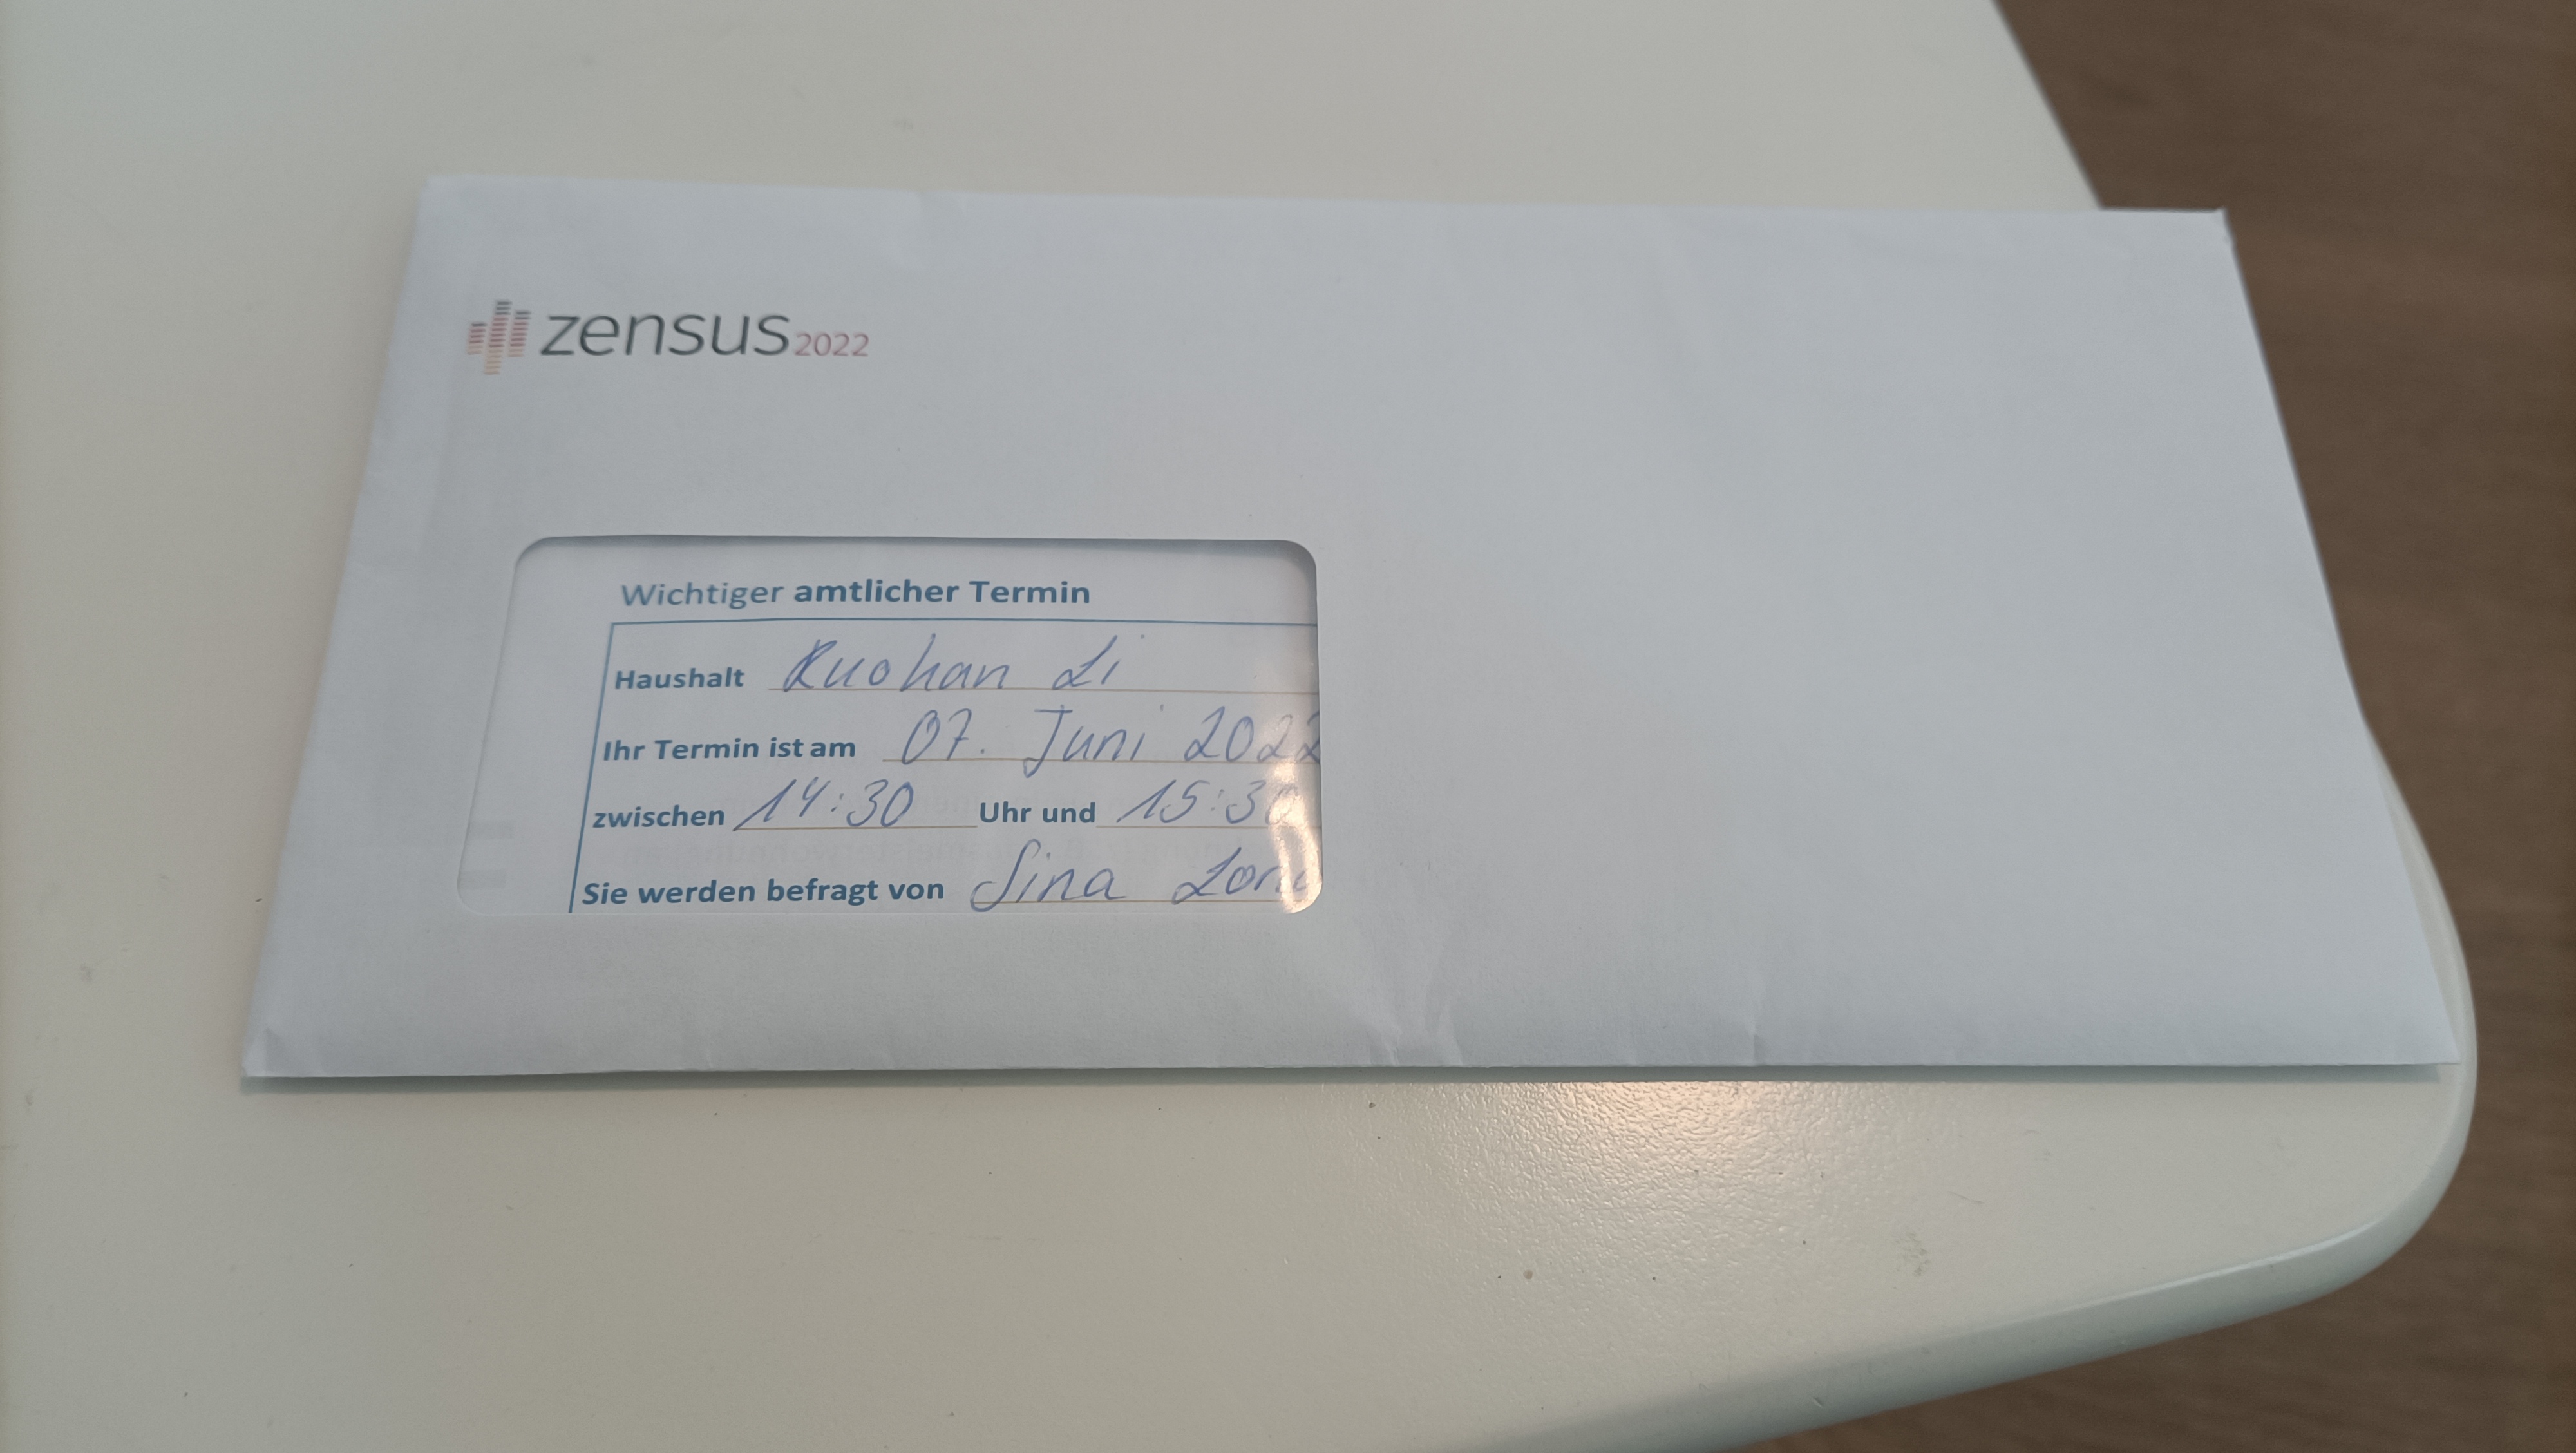 zensus2022
Wichtiger amtlicher Termin
Haushalt Ruohan Li
Ihr Termin ist am 07. Juni 2022
zwischen 14:30 Uhr und 15:30
Sie werden befragt von Sina